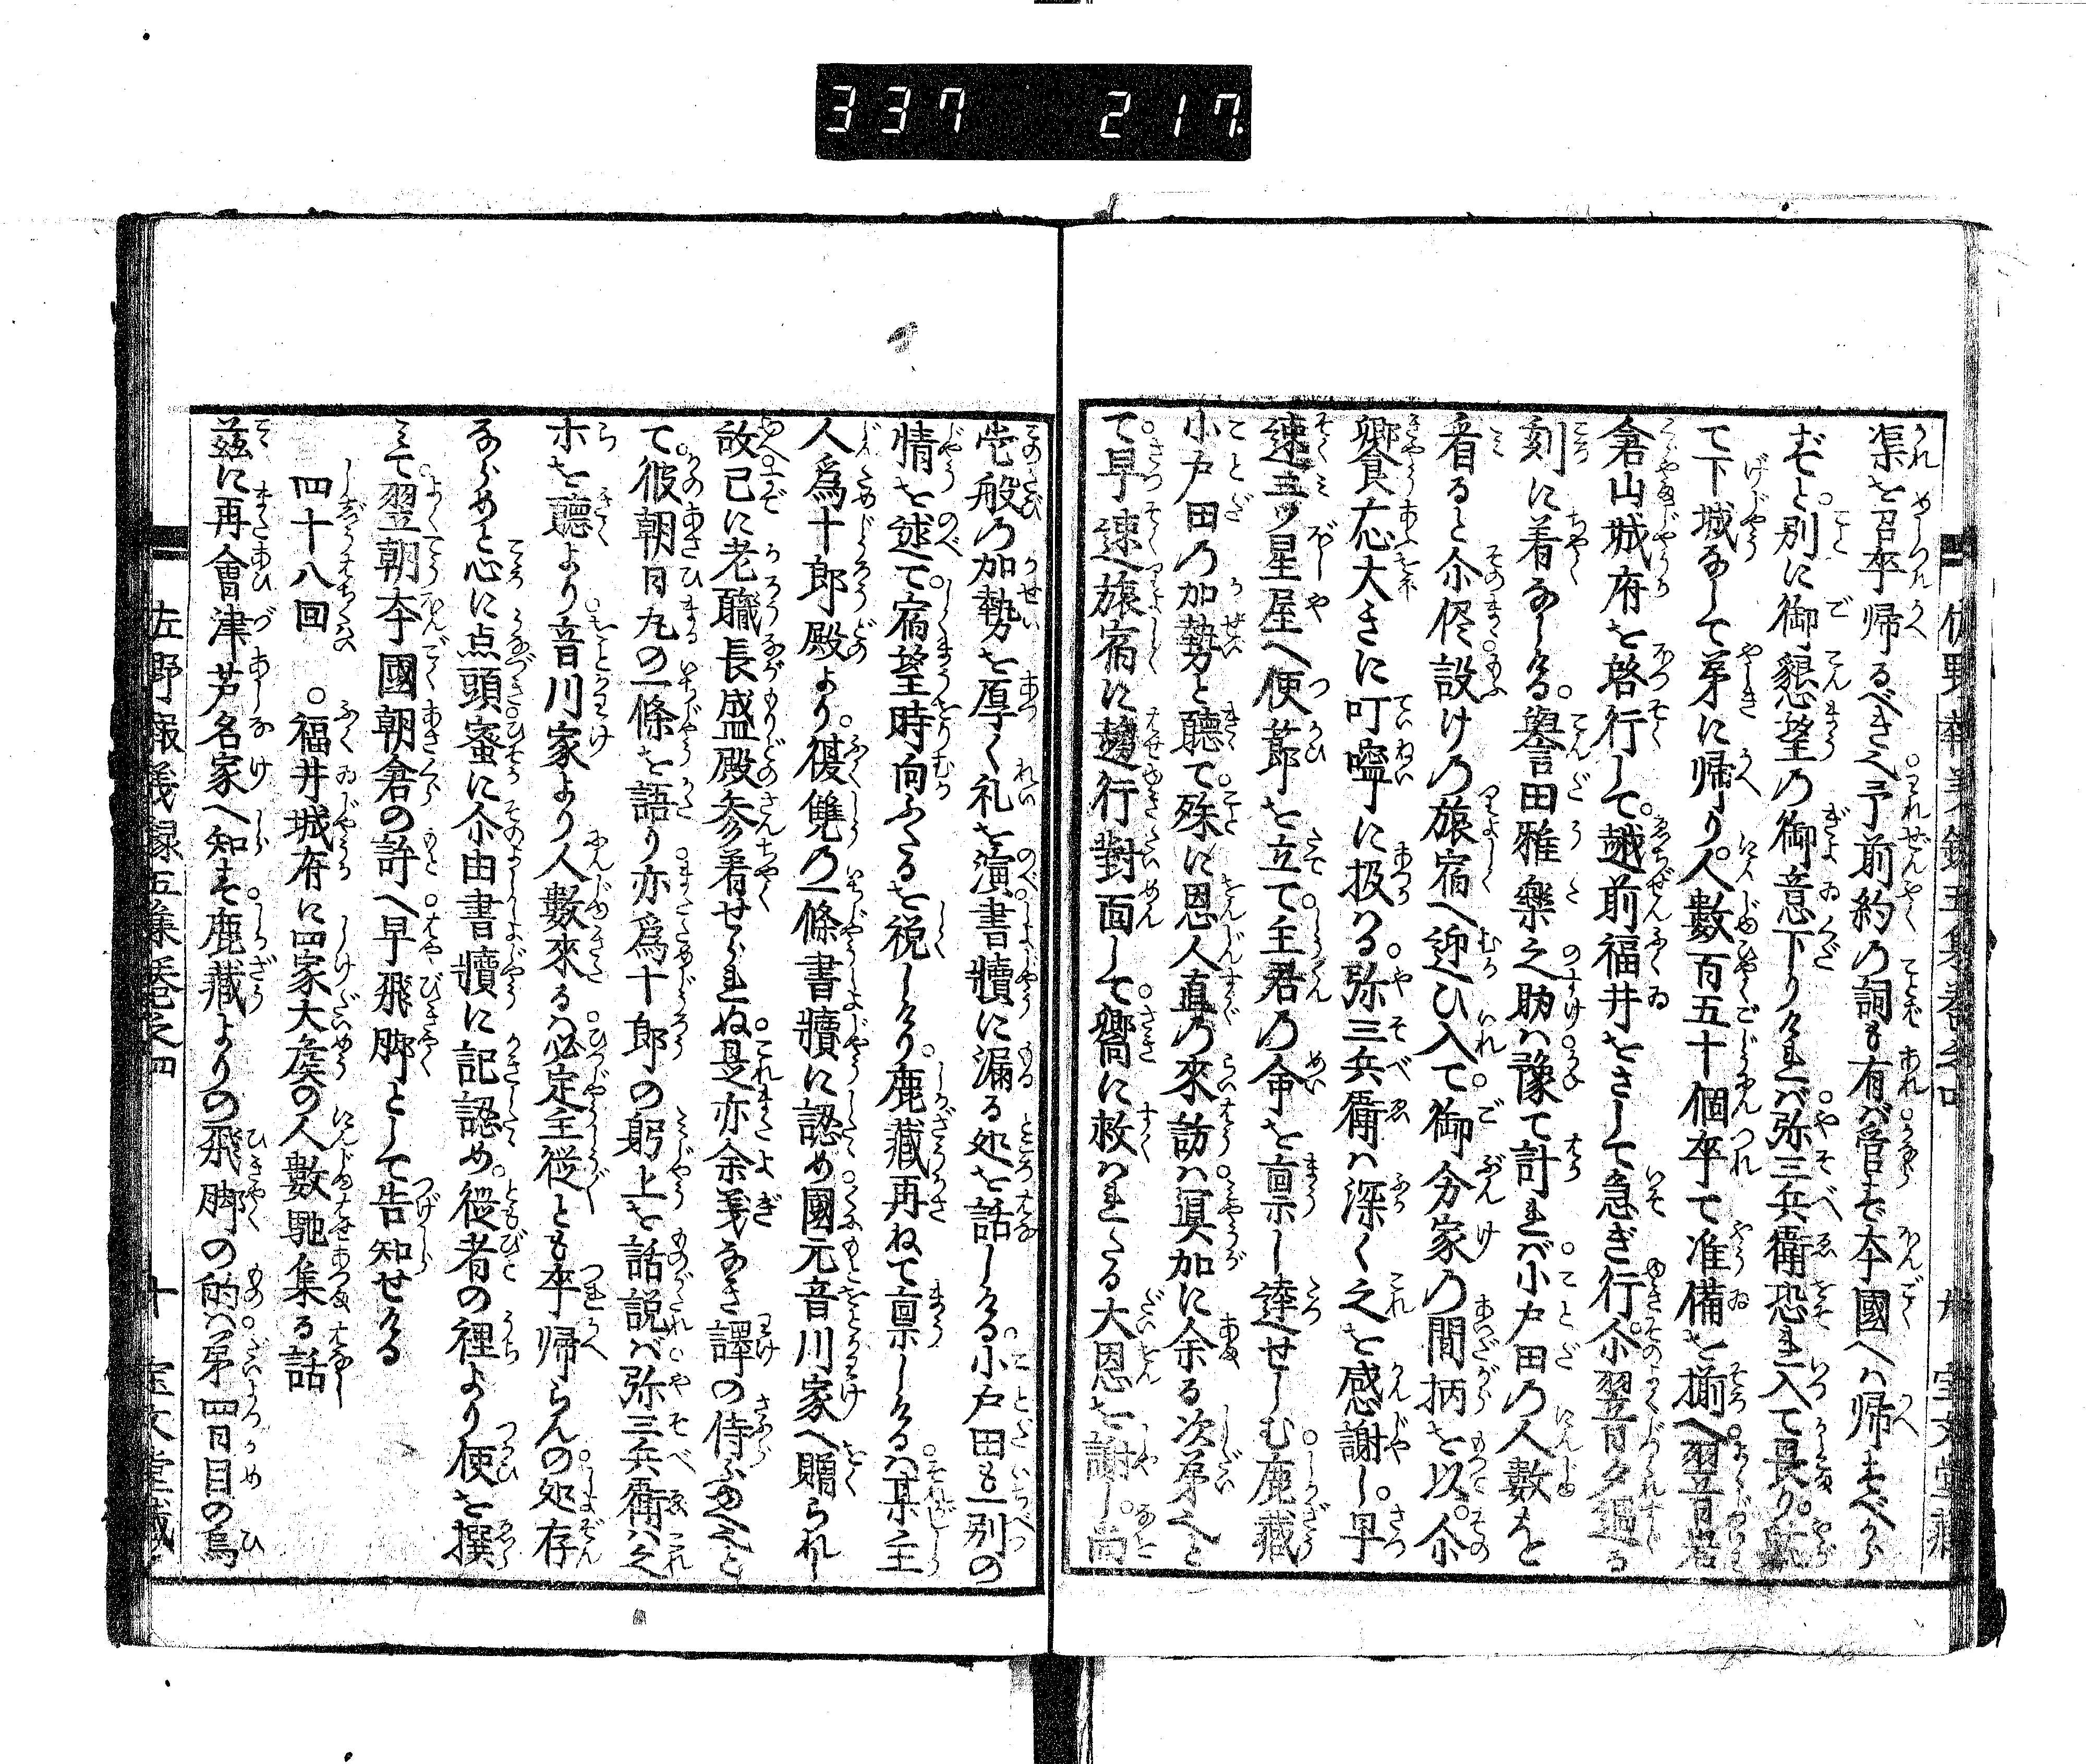 337 217.
渠を召卒帰るべき之予前約の詞も有ば管ず本國へハ帰すべから
ずと別に御懇望の御意下りけれバ弥三兵衛恐れ入て畏り
て下城なして第に帰り人數百五十個卒て准備を揃へ翌
倉山城府を啓行して越前福井をさして急ぎ行尒翌夕過る
刻に着なしける譽田雅樂之助ハ豫て計れバ小戸田の人數を
看ると尒侭設けの旅宿へ迎ひ入て御分家の間柄を以尒
饗食応大きに叮嚀に扱ける弥三兵衛ハ深く之を感謝し早
速三ッ星屋へ使節を立て主君の命を稟し達せしむ鹿藏
小戸田の加勢と聽て殊に恩人直の來訪ハ冥加に余る次第之と
て早速旅宿に趨行對面して嚮に救ハれたる大恩を謝し尚
壱般の加勢を厚く礼を演書牘に漏る処を話しける小戸田も一別の
情を述て宿望時向ふたるを祝しけり鹿藏再ねて稟しけるハ某主
人爲十郎殿より復讐の一條書牘に認め國元音川家へ贈られし
故已に老職長盛殿参着せられぬ是亦余義なき譯の侍ふ也之と
て彼朝日丸の一條を語り亦爲十郎の躬上を話説バ弥三兵衛ハ之
ホを聽より音川家より人數來るハ必定主從とも卒帰らんの処存
ならめと心に点頭蜜に尒由書牘に記認め從者の裡より使を撰
ミて翌朝本國朝倉の許へ早飛脚として告知せける
四十八回 ○福井城府に四家大矦の人數馳集る話
茲に再會津芦名家へ知せ鹿藏よりの飛脚の的ハ第四日目の烏
佐野報義録五集巻之四 十 宝文堂藏